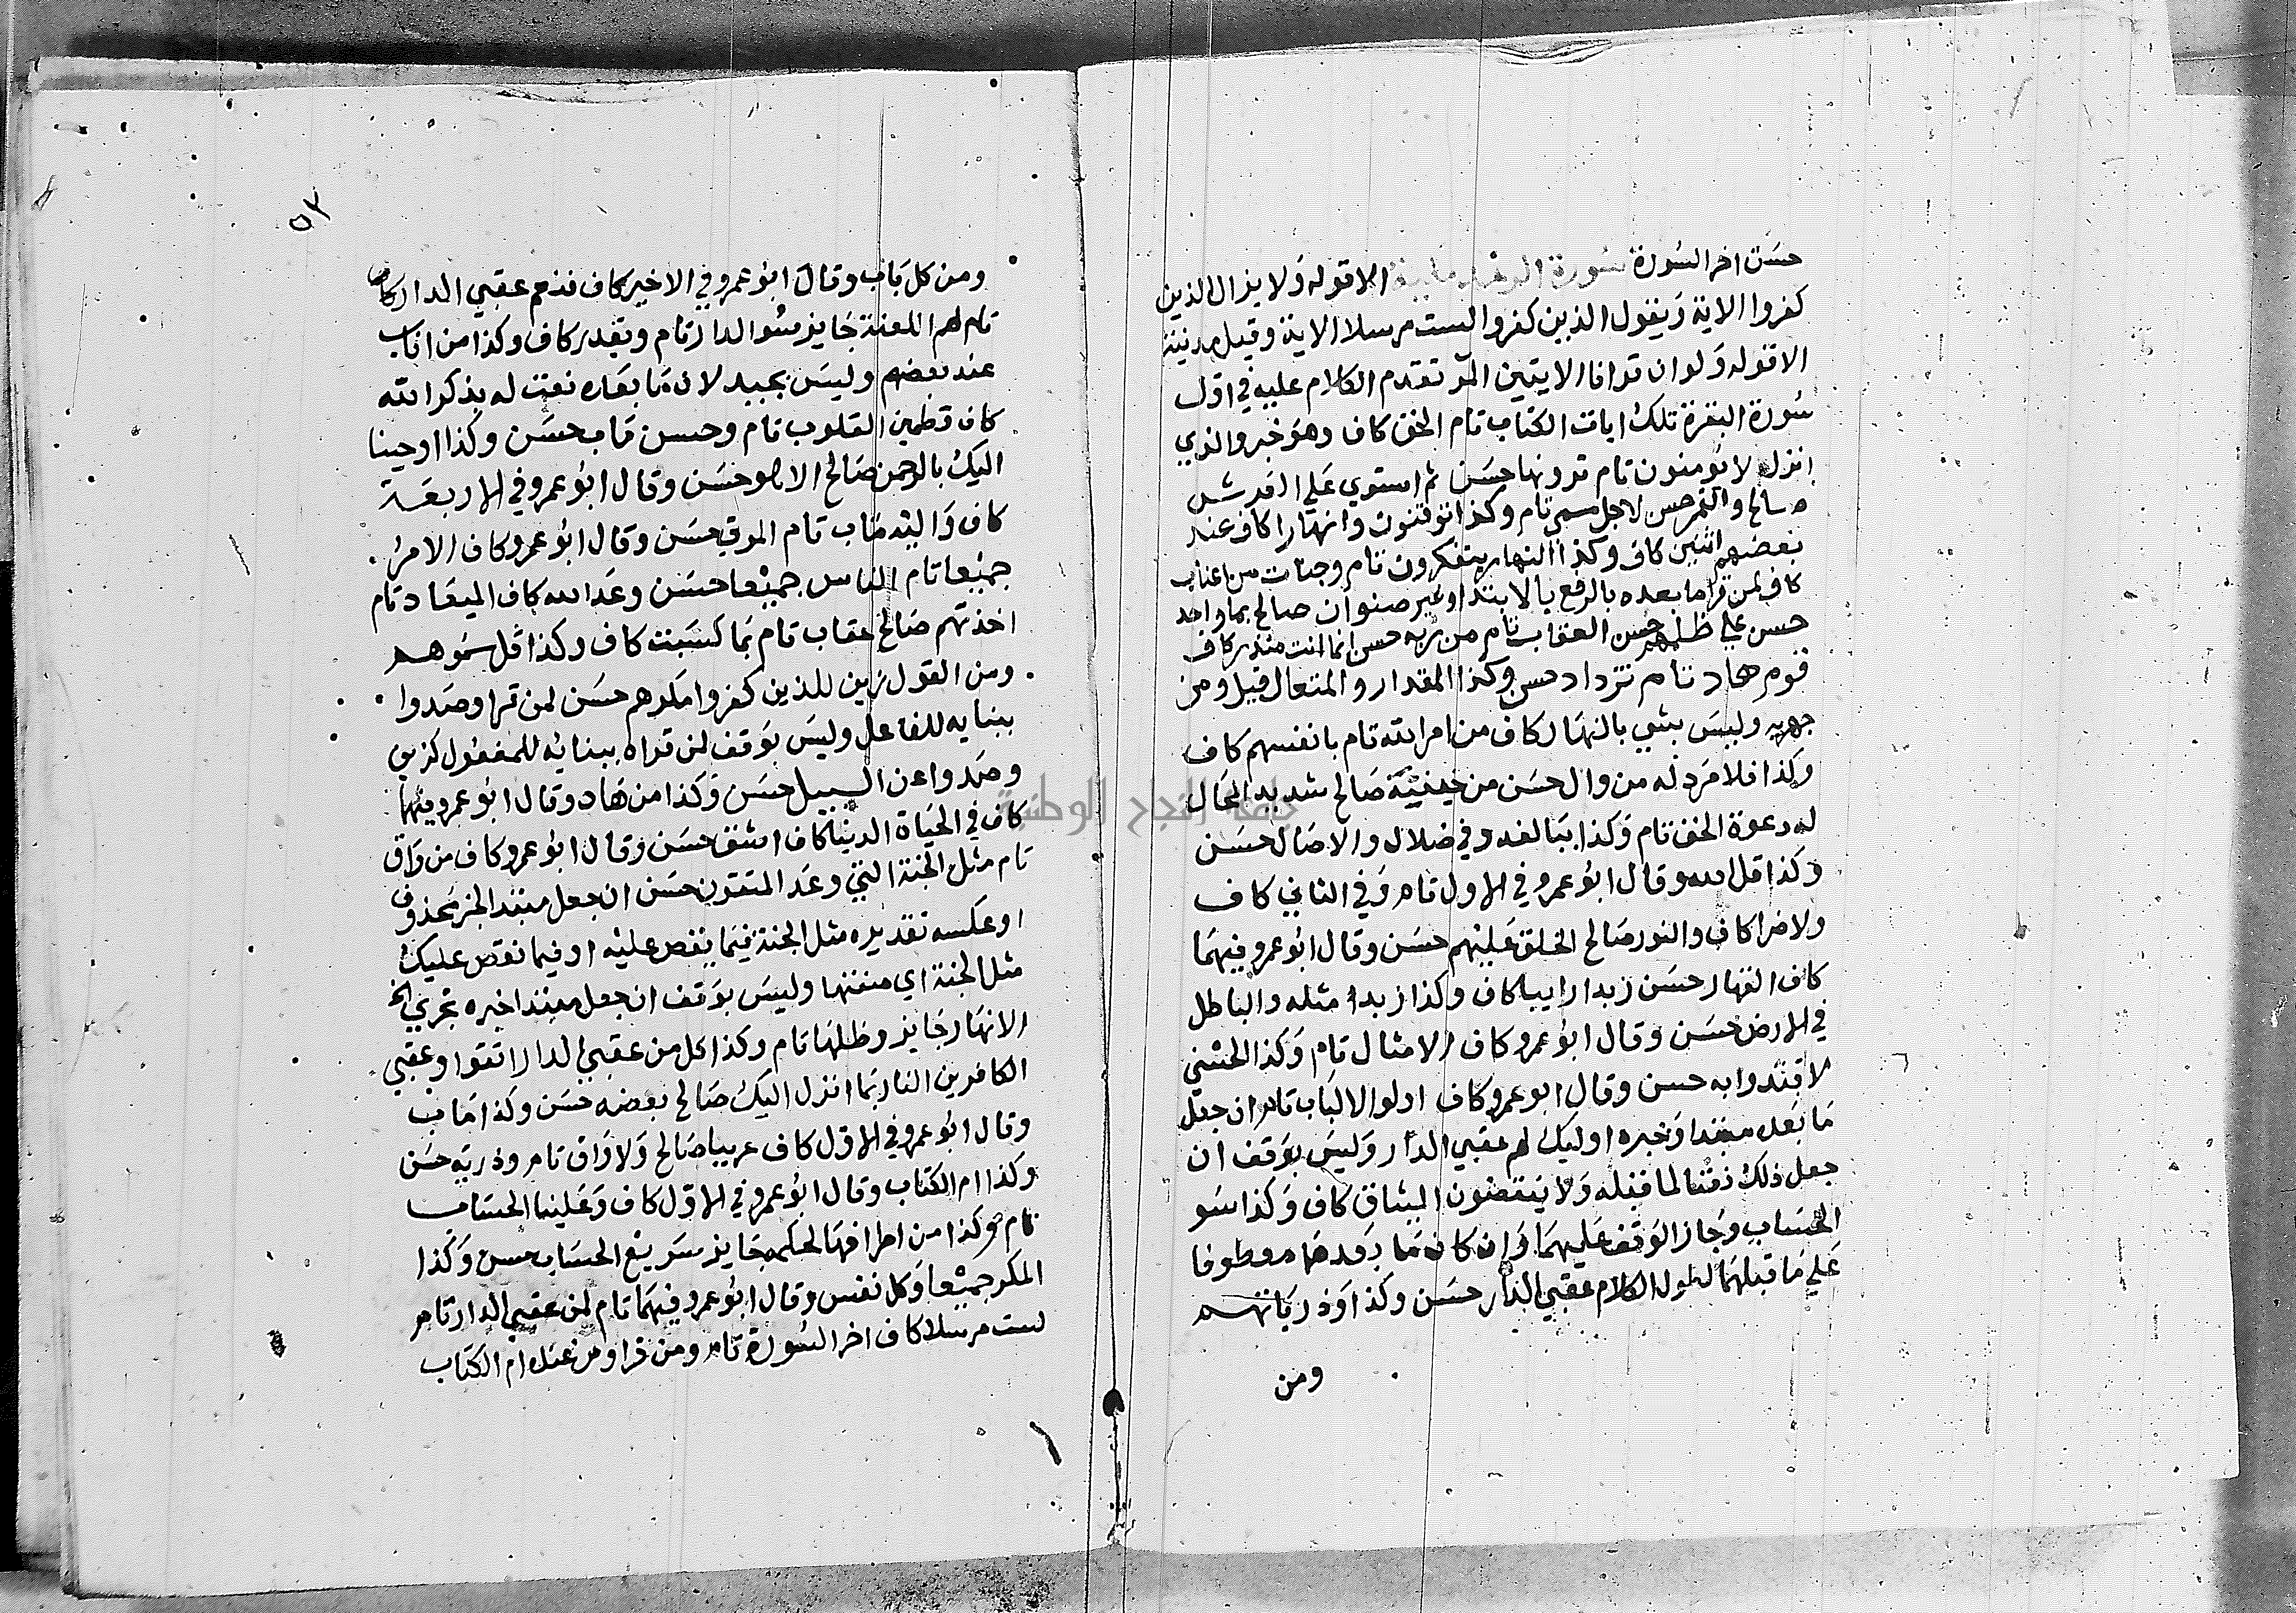 حسَن اخر السُورة سُورة الرعد مدنية الا قوله وَلا يزال الذين
كفروا الاية وَيقول الذين كفروا لست مرسلا الاية وقيل مدنية
الا قوله وَلو ان قرانا الايتين المر تقدم الكلام عليه في اول
سُورة البقرة تلك ايات الكتاب تام الحق كاف وهو خبر والذي
انزل لا يُومنون تام ترونها حسَن ثم استوي عَلي العرش
صالح والقمر حسن لاجل مسمي تام وكذا توقنون وانهارا كاف عند
بعضهم اثنين كاف وكذا النهار يتفكرون تام وجنات من اعناب
كاف لمن قرا ما بعده بالرفع بالابتدا وغير صنوان صالح بما واحد
حسن علي ظلمهم حسن العقاب تام من ربه حسن انما انت منذر كاف
قوم هاد تام تزداد حسن وكذا المقدار والمتعال قيل ومن
جهر به وليسَ بشي بالنهَار كاف من امر الله تام بانفسهم كاف
وكذا فلا مَرد له من وال حسَن من خيفتِه صَالح شديد المحَال
له دعوة الحق تام وَكذا ببَالغه وفي ضلال والاصَال حسَن
وكذا قل الله وقال ابُو عمرو في الاول تام وَفي الثاني كاف
ولا ضرا كاف والنور صَالح الخلق عَليْهم حسَن وقال ابُو عمرو فيهمَا
كاف القهار حسَن زبدا رابيا كاف وكذا زبد مثله والباطل
في الارض حسَن وقال ابُو عمرو كاف الامثال تام وَكذا الحسْني
لافتدوا به حسن وقال ابو عمرو كاف اولوا الالبَاب تام ان جعل
مَا بَعده مبتدا وَخبره اوليك لهم عقبي الدار وَليسَ بوَقف ان
جعل ذلك نعتا لما قبله وَلا ينقضون الميثاق كاف وَكذا سُو
الحسَاب وجَاز الوَقف عَليهمَا وَان كان مَا بَعدهَا معطوفا
عَلي مَا قبلهمَا لطول الكلام عقبي الدار حسَن وكذا وَذرياتهم
ومن
٥٣
ومن كل بَاب وقال ابُو عمرو في الاخير كاف فنعم عقبي الدار كاف
تام لهم اللعنة جَايز سُو الدار تام ويقدر كاف وكذا من اناب
عند بعضهم وليسَ بجيد لان مَا بعَده نعت له بذكر الله
كاف تطمين القلوب تام وحسن مَاب حسَن وكذا اوحينا
اليك بالرحمن صَالح الا هو حسَن وقال ابُو عمرو في الاربعَة
كاف وَاليْه متاب تام الموتي حسَن وقال ابُو عمرو كاف الامرُ
جميْعا تام الناس جميْعا حسَن وعَد الله كاف الميعَاد تام
اخذتهم صَالح عقاب تام بمَا كسَبت كاف وكذا قل سمُوهم
ومن القول زين للذين كفروا مَكرهم حسَن لمن قرا وصَدوا
ببنايه للفاعل وليسَ بوَقف لمن قراه ببنايه للمفعُول كزين
وصَدوا عن السبيل حسَن وَكذا من هَاد وقال ابُو عمرو فيهمَا
كاف في الحيَاة الدنيا كاف اشق حسَن وقال ابُو عمرو كاف من وَاق
تام مثل الجنة التي وعَد المتقون حسَن ان جعل مبتدا الخبر محذوف
او عكسه تقديره مثل الجنة فيمَا يقص عليْه او فيما نقص عليكُ
مثل الجنة اي صفتها وليسَ بوَقف ان جعل مبتدا خبره تجري الخ
الانهَار جَايز وظلهَا تام وكذا كل من عقبي الدار اتقوا وعقبي
الكافرين النار بمَا انزل اليكُ صَالح بعضه حسَن وكذا مَاب
وقال ابُو عمرو في الاول كاف عربيا صَالح وَلا وَاق تام وذرية حسَن
وكذا ام الكتاب وقال ابُو عمرو في الاول كاف وَعَلينا الحسَاب
تام وكذا من اطرافهَا لحكمه جَايز سَريع الحسَاب حسن وَكذا
المكر جميْعا وَكل نفس وقال ابُو عمرو فيهمَا تام لمن عقبي الدار تام
لست مرسلا كاف اخر السُورة تام ومن قرا ومن عنده ام الكتاب
جامعة النجاح الوطنية